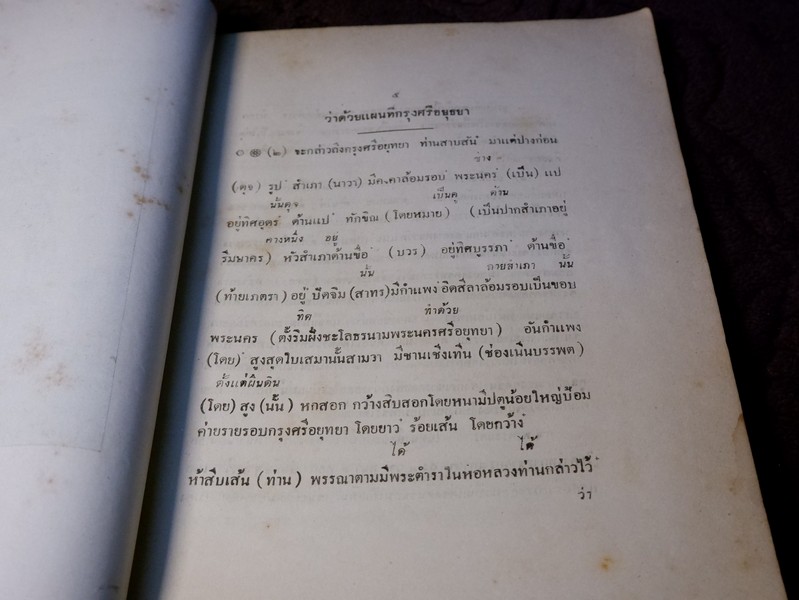 ๕
ว่าด้วยแผนที่กรุงศรีอยุธยา
(๒) จะกล่าวถึงกรุงศรีอยุทยา ท่านสาบสัน มาแต่ปางก่อน
ว่าง
(ดุจ) รูป สำเภา (นาวา) มีคงคาล้อมรอบ พระนคร (เป็น) แป
นั้นดุจ เป็นคุ ด้าน
อยู่ทิศอุดร ด้านแป ทักขิณ (โดยหมาย) (เป็นปากสำเภาอยู่
คางหนึ่ง อยู่
ริมษาคร) หัวสำเภาด้านขื่อ (บวร) อยู่ทิศบูรรภา ด้านขื่อ
นั้น ถายสำเภา นั้น
(ท้ายเภตรา) อยู่ ปัตจิม (สาทร) มีกำแพง อิดสีลาล้อมรอบเป็นขอบ
ทิศ ทำด้วย
พระนคร (ตั้งริมฝั่งชะโลธรนามพระนครศรีอยุทยา) อันกำแพง
(โดย) สูงสุดใบเสมานั้นสามวา มีชานเชิงเทิน (ช่องเนินบรรพต)
ตั้งแต่ผืนดิน
(โดย) สูง (นั้น) หกสอก กว้างสิบสอกโดยหนามีปตูน้อยใหญ่ป้อม
ค่ายรายรอบกรุงศรีอยุทยา โดยยาว ร้อยเส้น โดยกว้าง
ได้ ได้
ห้าสิบเส้น (ท่าน) พรรณาตามมีพระตำราในหอหลวงท่านกล่าวไว้
ว่า